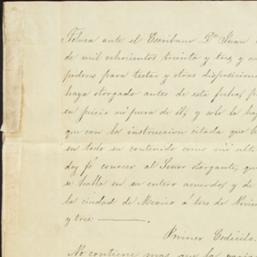 Toluca ante el Escribano Dn. Juan
de mil ochocientos treinta y tres, y
poderes para testar y otras disposicione
haya otorgado antes de esta fecha, p
en juicio ni fuera de él, y solo la ha
que con la instruccion citada que
en todo su contenido como mi últi
doy fé conocer al Señor otorgante, que
se halla en su entero acuerdo, y de
la ciudad de Mexico á tres de
y tres
Primer Codicilo.
No contiene mas que la